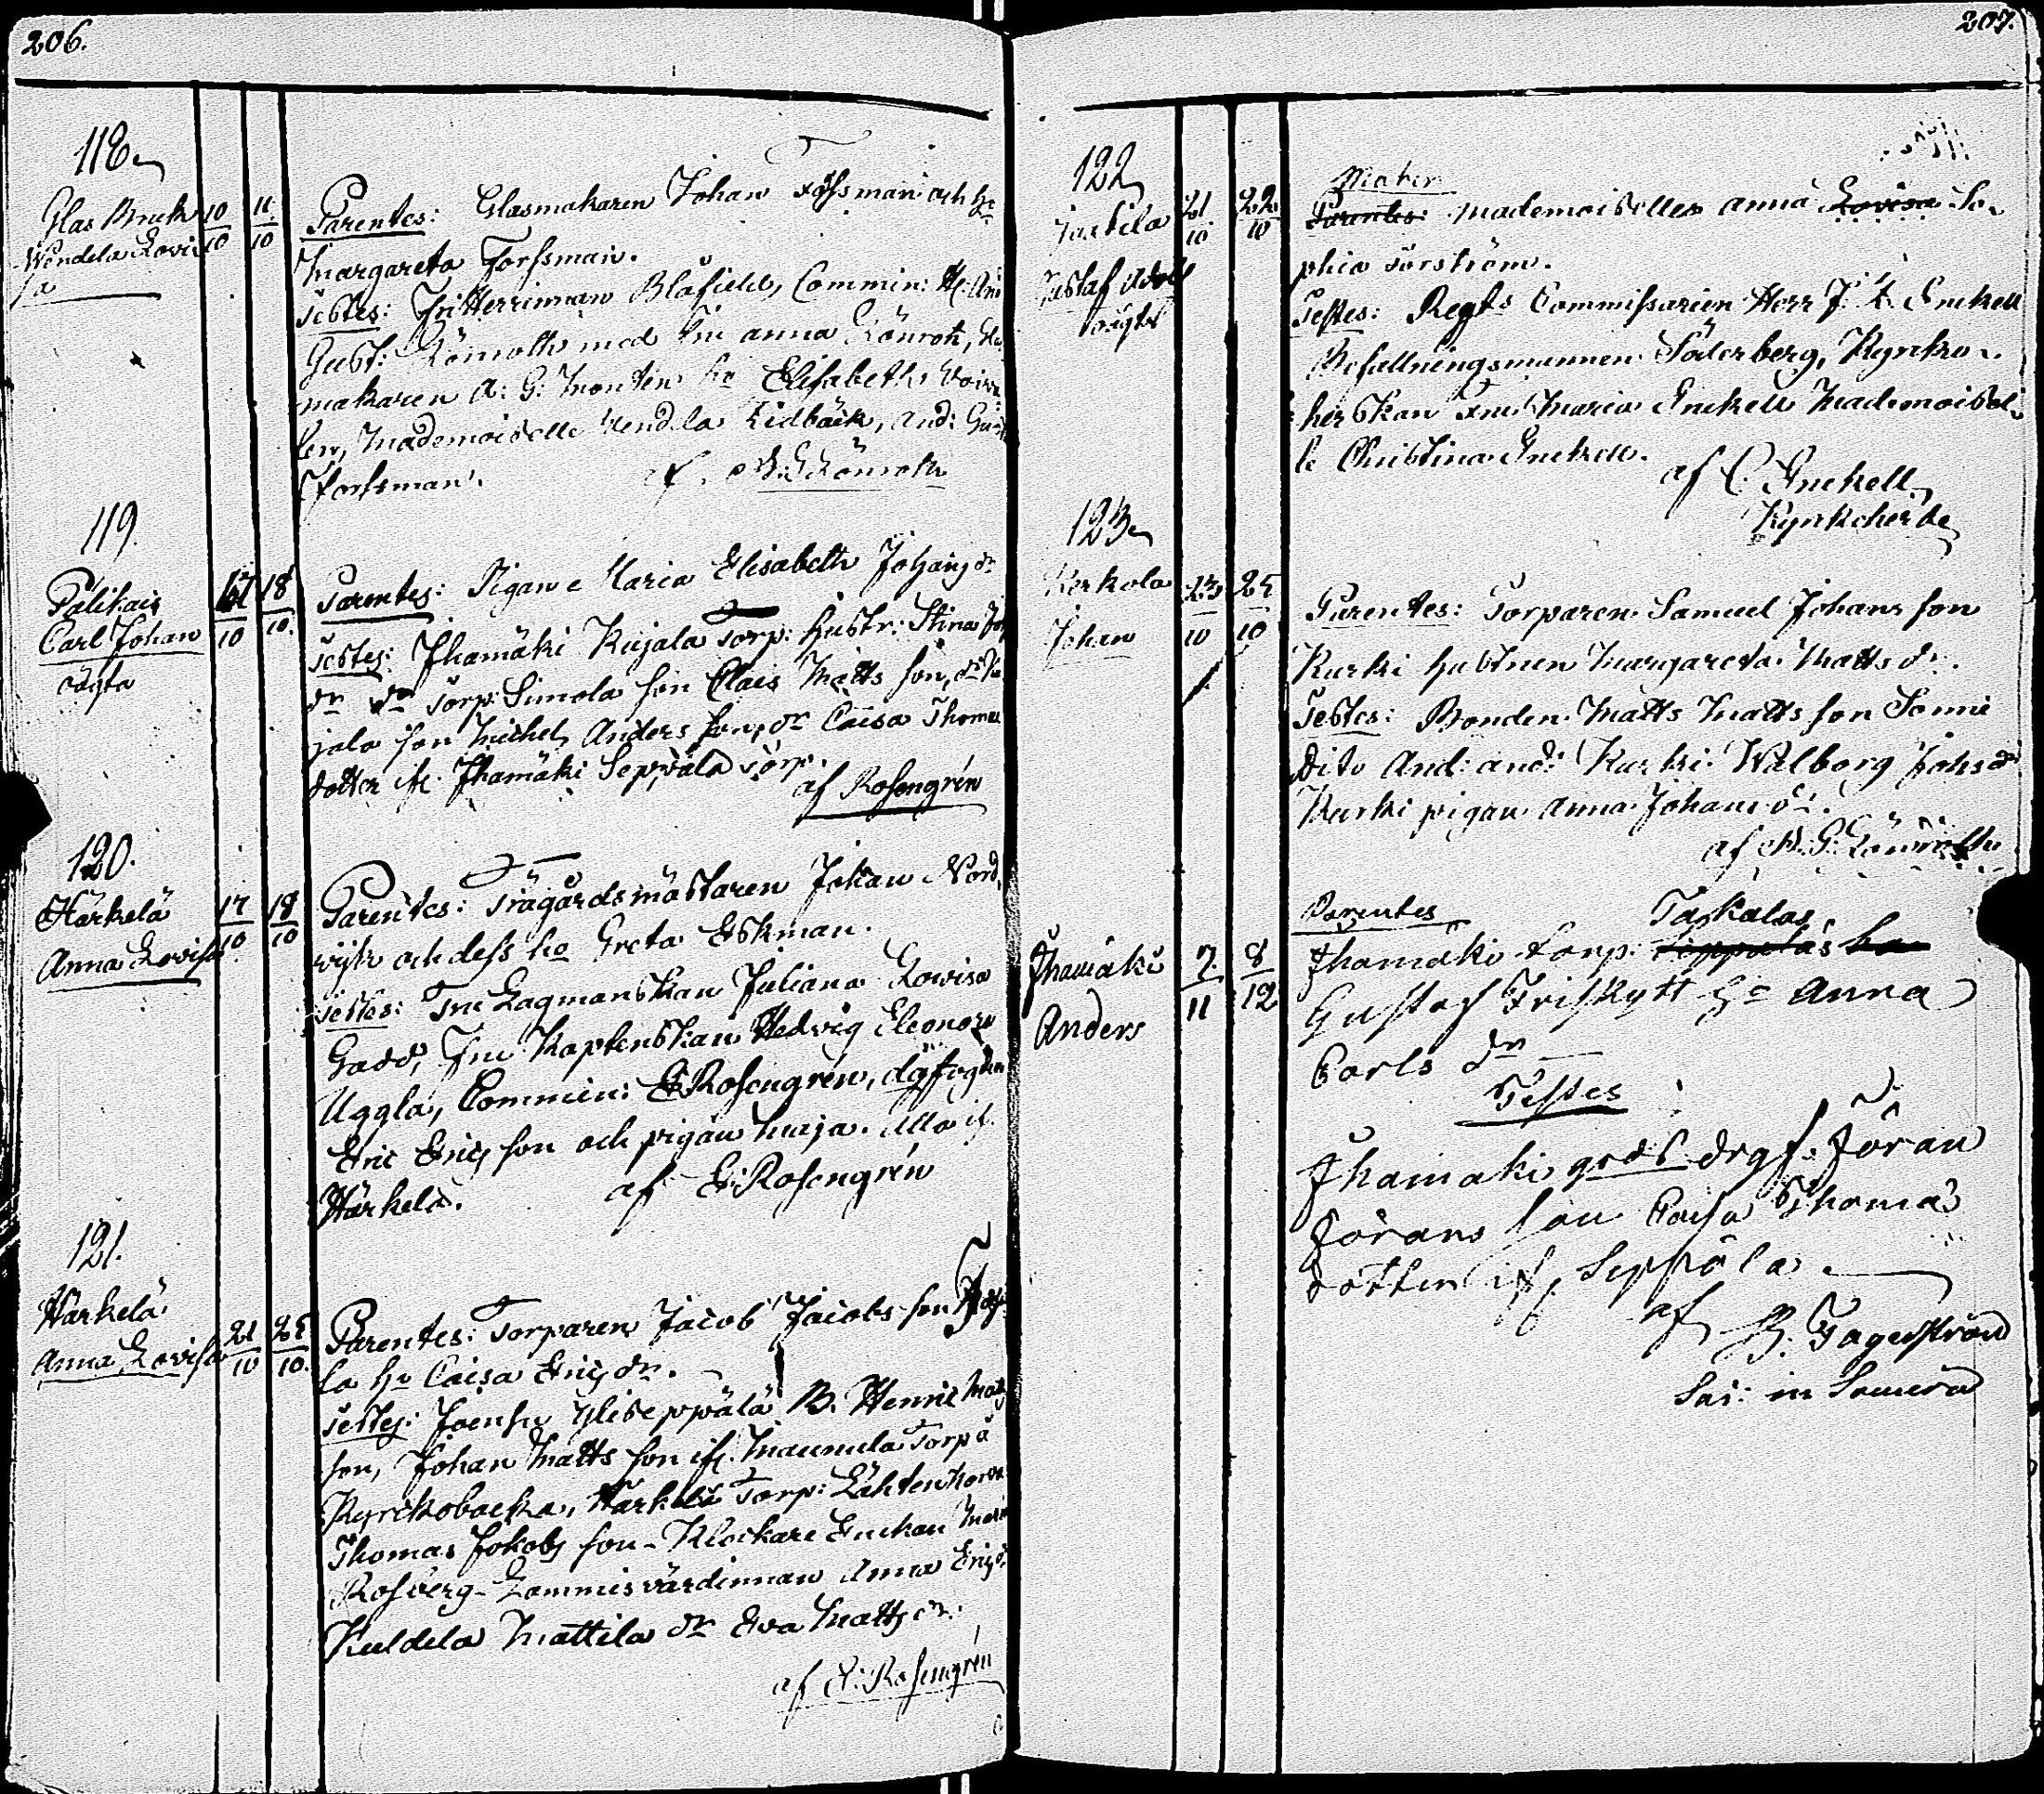 206.
118
Glas Bruk
Wendela Lovi
sa
10
10
11
10
Parentes: Glasmakaren Johan Forsman och hu
Margareta Forssman.
Testes: Fru Herrinnan Blåfield, Commin: H. And
Gust: Lönroth med Fru Anna Lönroth, Glas
makaren A: G: Montin hu Elisabeth
len, Mademoiselle Vendela Lidbäck, And: Gust
Forssman.
af A: G Lönroth
119.
Palikais
Carl Johan
oägta
17
10
18
10.
Parentes: Pigan Maria Elisabeth Johansdr
Testes: Jhamäki Kujala Torp: Hustr: Stina Joh
dr dn Torp: Simola son Clais Matts son, dn Ku
jala son Michel Anders son, dr Caisa Thomas
dotter if. Jhamäki Seppälä Torp.
af Rosengrén
120.
Härkelä
Anna Lovisa
17
10
18
10
Parentes: Trägårdsmästaren Johan Nord
wijk och dess hu Greta Ekman.
Testes: Fru Lagmanskan Juliana Lovisa
Gadd, Fru Kaptenskan Hedvig Eleonora
Uggla, Commin: E: Rosengrén, 
Eric Ericsson och pigan Maja. Alla if.
Härkelä.
af E: Rosengrén
121.
Härkelä
Anna Lovisa
21
10
25
10.
Parentes: Torparen Jacob Jacobs son
la hu Caisa Ericsdr.
Testes: Joensu Yliseppälä B. Henric Matts
son, Johan Matts son if. Maunula Torp å
Kyrckobacka, Härkelä Torp: Lähtenkorva
Thomas Jakobs son - Klockare Enckan Maria
Rosberg - Lommisvärdinnan Anna Ericsd.
Kuldela Mattila dr Eva Mattsdr.
af E: Rosengrén
207.
122
Jaxtila
Gustaf Adolf
oägta
21
10
22
10
Mater
Parentes: Mademoiselles Anna Lovisa So-
phia Torström.
Testes: Regts Commissarien Herr J: H Enckell
Befallningsmannen Söderberg, Kyrko-
herskan Fru Maria Enckell Mademoisel-
le Christina Enckell.
af C. Enckell
Kyrckoherde
123
Kerkola
Johan
23
10
25
10
Parentes: Torparen Samuel Johans son
Kurki hustrun Margareta Mattsdr.
Testes: Bonden Matts Matts son Sonni
Dito And: And: Kurki Walborg Johs dr
Kurki pigan Anna Johansdr.
af A: G: Lönroth
Jhamäki
Anders
7.
11
8
12
Parentes
Taskalas
Jhamäki torp:
Gustaf Friskytt hu Anna
Carls dr
Testes
Jhamäki gods drgf. Jöran
Jörans son Caisa Thomas
dotter if. Seppälä.
af B. Fagerström
Sac: in Somero